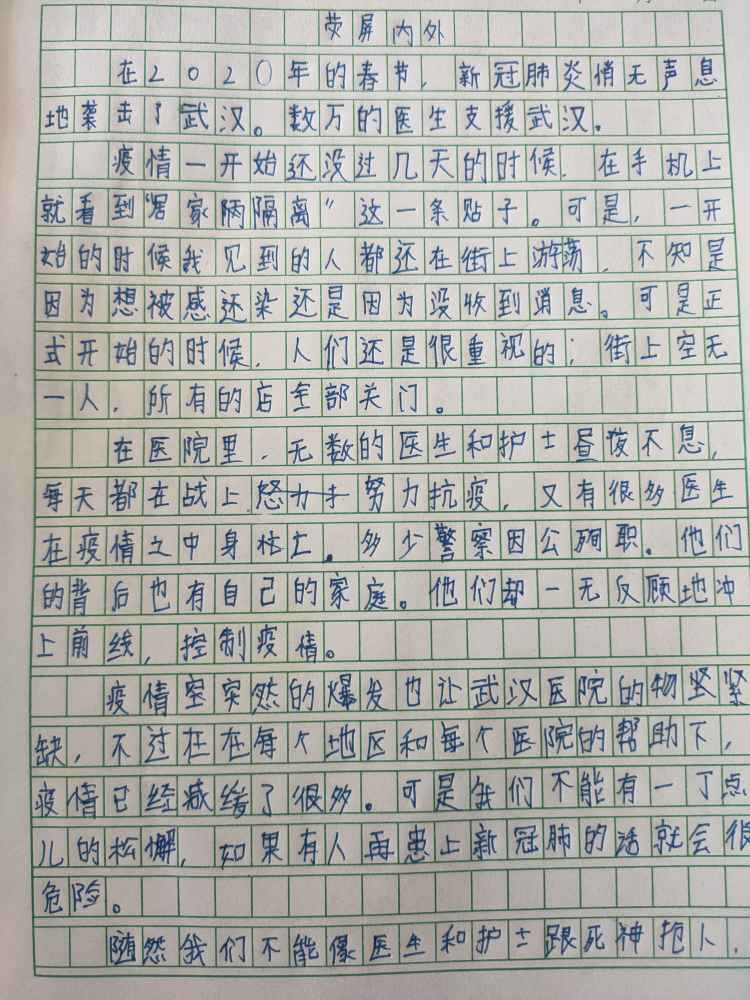 荧屏内外
在2020年的春节，新冠肺炎悄无声息
地袭击了武汉。数万的医生支援武汉。
疫情一开始还没过几天的时候，在手机上
就看到“居家两隔离”这一条贴子。可是，一开
始的时候我见到的人都还在街上游荡，不知是
因为想被感还染还是因为没收到消息。可是正
式开始的时候，人们还是很重视的；街上空无
一人，所有的店全部关门。
在医院里，无数的医生和护士昼夜不息，
每天都在战上怒力才努力抗疫，又有很多医生
在疫情之中身忙亡。多少警察因公殉职。他们
的背后也有自己的家庭。他们却一无反顾地冲
上前线，控制疫情。
疫情空突然的爆发也让武汉医院的物坚紧
缺，不过在在每个地区和每个医院的帮助下，
疫情已经减缓了很多。可是我们不能有一丁点
儿的松懈，如果有人再患上新冠肺的话就会很
危险。
随然我们不能像医生和护士跟死神抢人，